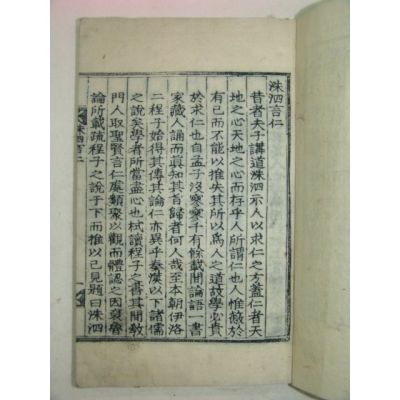 洙泗言仁
昔者夫子講道洙泗示人以求仁之方蓋仁者天
地之心天地之心而存乎人所謂仁也人惟蔽於
有己而不能以推失其所以為人之道故學必貴
於求仁也自孟子沒寥寥千有餘載間論語一書
家藏人誦而真知其首歸者何人哉至本朝伊洛
二程子始得其傳其論仁亦異乎秦漢以下諸儒
之說矣學者所當盡心也栻讀程子之書其間教
門人取聖賢言仁處類聚以觀而體認之因裒魯
論所載疏程子之說于下而推以己見題曰洙泗
洙泗言仁 一